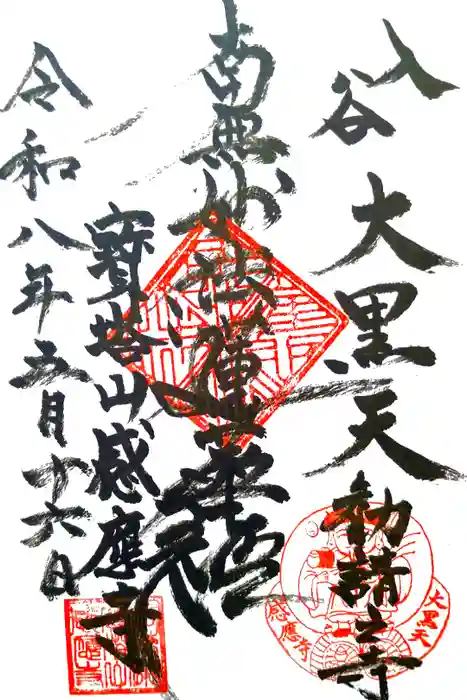 入谷
大黒天
勧請之寺
南無妙法蓮華経
寶塔山感應寺
令和八年五月十六日
大黒天
感應寺